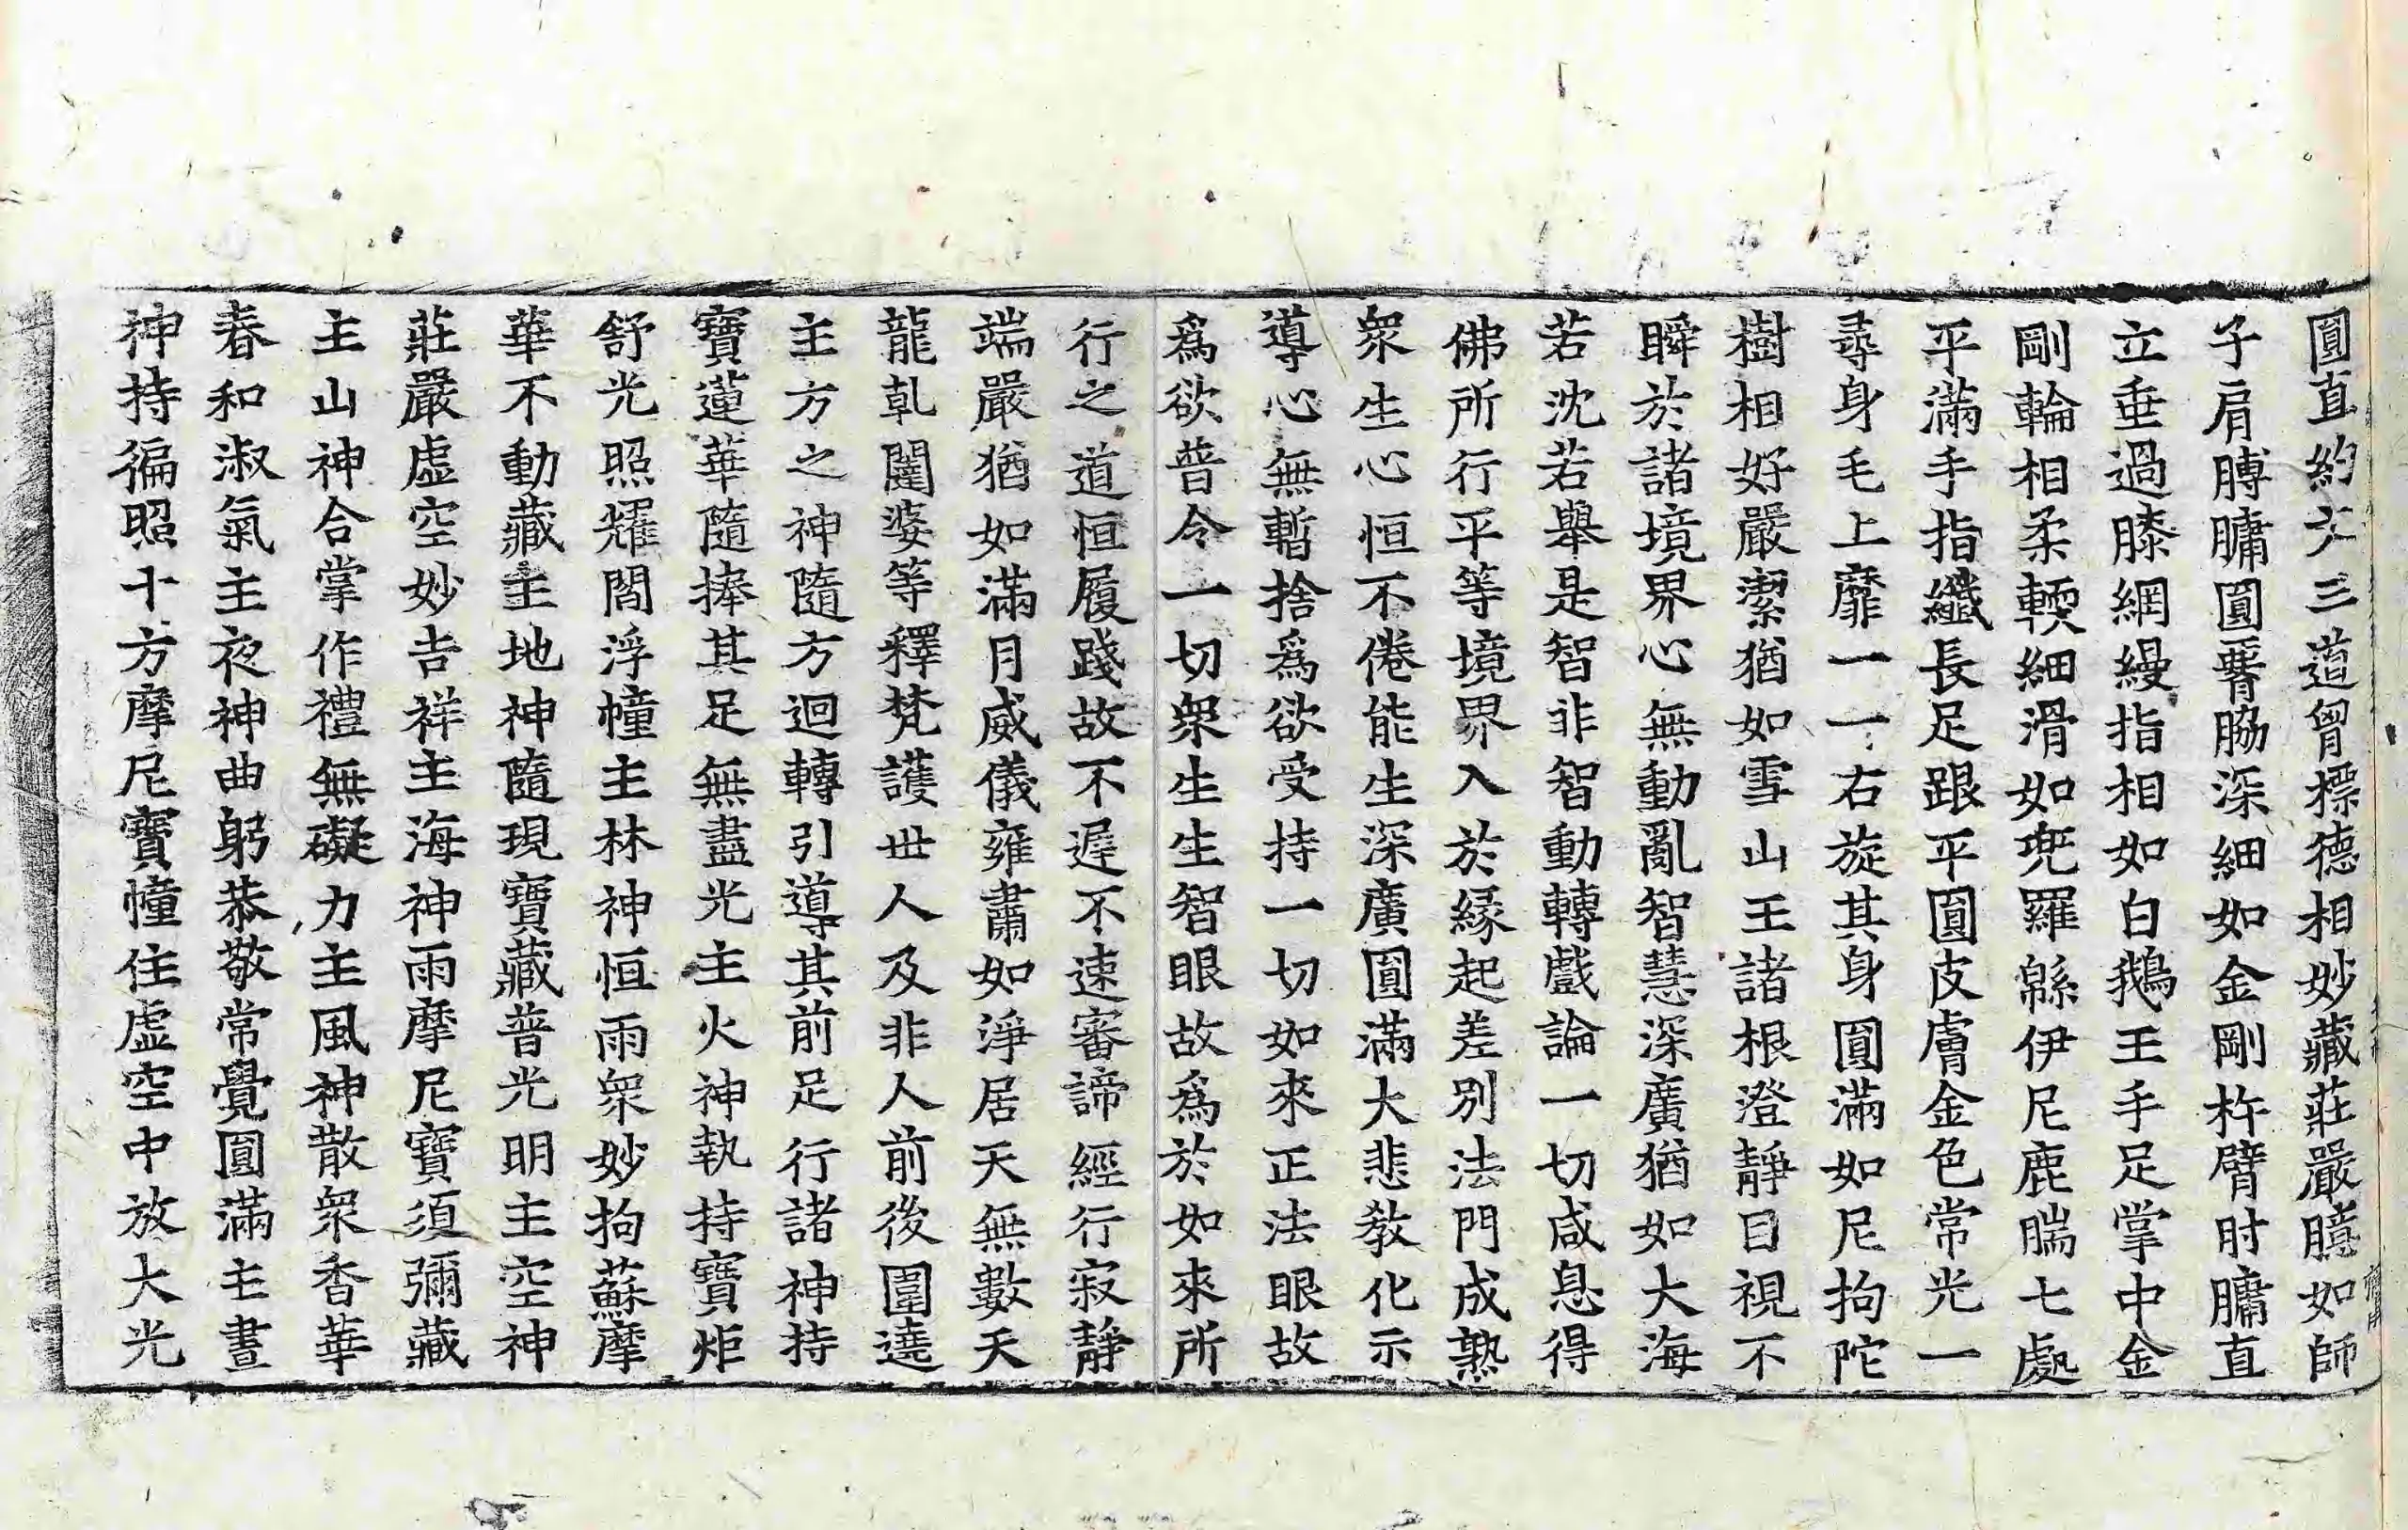 圓直約文三道胷摽德相妙藏莊嚴臆如師
子肩膊𦟛圓臀脇深細如金剛杵臂肘𦟛直
立垂過膝網縵指相如白鵝王手足掌中金
剛輪相柔輭細滑如兜羅緜伊尼鹿腨七處
平滿手指纖長足跟平圓皮膚金色常光一
尋身毛上靡一一右旋其身圓滿如尼拘陀
樹相好嚴潔猶如雪山王諸根澄靜目視不
瞬於諸境界心無動亂智慧深廣猶如大海
若沈若舉是智非智動轉戲論一切咸息得
佛所行平等境界入於緣起差別法門成熟
衆生心恒不倦能生深廣圓滿大悲教化示
導心無暫捨爲欲受持一切如來正法眼故
爲欲普令一切衆生生智眼故爲於如來所
行之道恒履踐故不遲不速審諦經行寂靜
端嚴猶如滿月威儀雍肅如淨居天無數天
龍乹闥婆等釋梵護世人及非人前後圍遶
主方之神隨方迴轉引導其前足行諸神持
寶蓮華隨捧其足無盡光主火神執持寶炬
舒光照耀閻浮幢主林神恒雨衆妙拘蘇摩
華不動藏主地神隨現寶藏普光明主空神
莊嚴虛空妙吉祥主海神雨摩尼寶須彌藏
主山神合掌作禮無礙力主風神散衆香華
春和淑氣主夜神曲躬恭敬常覺圓滿主晝
神持徧照十方摩尼寶幢住虛空中放大光